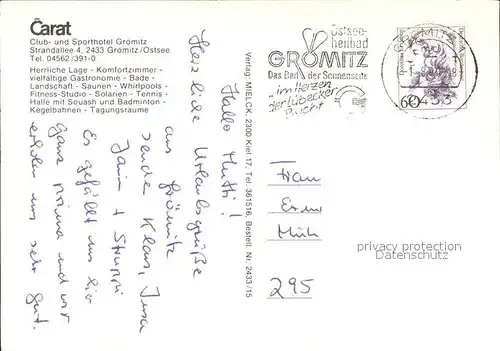 Carat
Club- und Sporthotel Grömitz
Strandallee 4, 2433 Grömitz/Ostsee
Tel. 04562/391-0
Herrliche Lage - Komfortzimmer -
vielfältige Gastronomie - Bade -
Landschaft - Saunen - Whirlpools -
Fitness-Studio - Solarien - Tennis -
Halle mit Squash und Badminton -
Kegelbahnen - Tagungsräume
Hallo Mutti!
Herzliche Urlaubsgrüße
aus Grömitz
senden Klaus,
+ Struppi
Es gefällt uns hier
ganz prima und wir
erholen uns sehr gut.
Verlag: MIELCK, 2300 Kiel 17, Tel. 361516, Bestell. Nr. 2433/15
Ostsee-
heilbad
GRÖMITZ
Das Bad der Sonnenseite
"im Herzen
der Lübecker
Bucht"
GRÖMITZ
60
Frau
privacy protection
Datenschutz
295